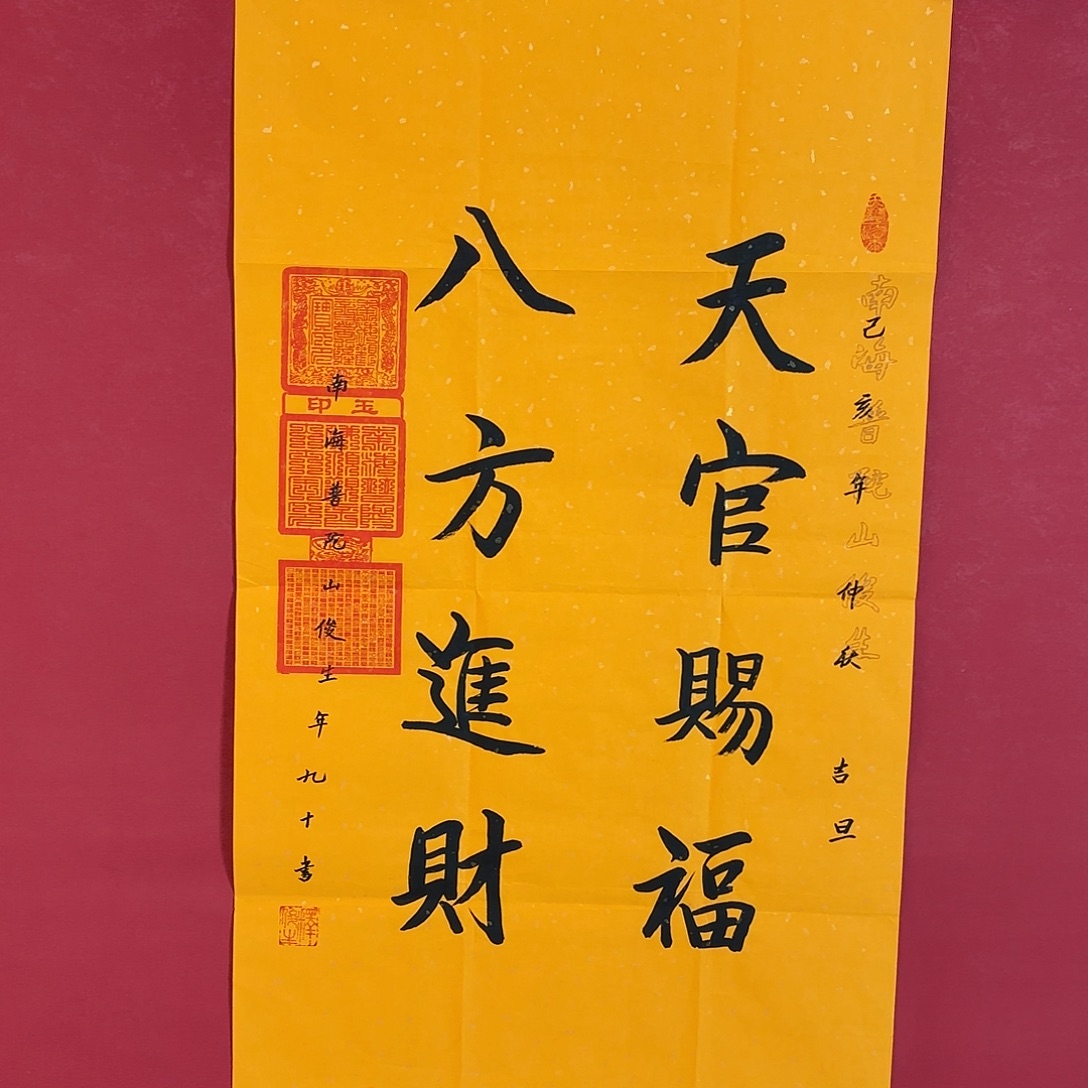 己亥年仲秋吉旦
南海普陀山俊生
天官賜福
八方進財
南海普陀山俊生年九十書
玉印